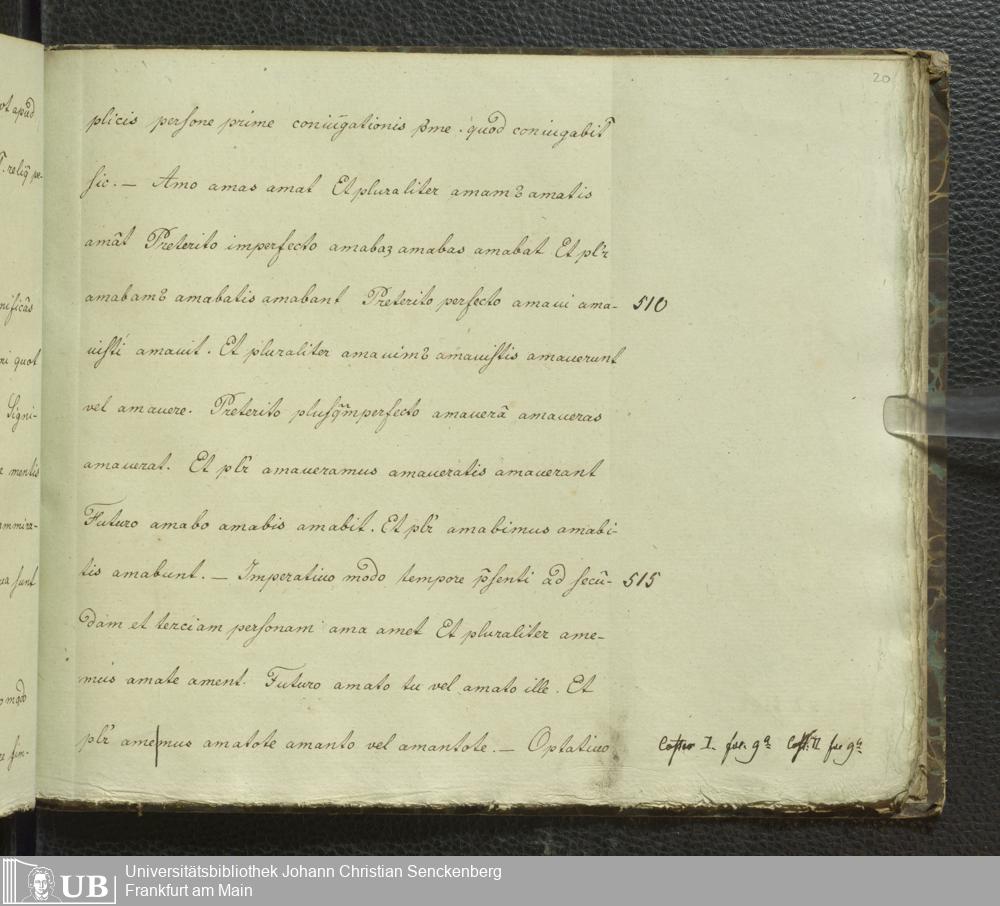 20
plicis persone prime coniūgationis p̄me . quod coniugabit᷑
sic. — Amo amas amat Et pluraliter amamꝰ amatis
amāt Preterito imperfecto amabaꝫ amabas amabat Et pl᷑r
amabamꝰ amabatis amabant Preterito perfecto amaui ama- 510
uisti amauit. Et pluraliter amauimꝰ amauistis amauerunt
vel amauere. Preterito plusq̄mperfecto amauerā amaueras
amauerat. Et pl᷑r amaueramus amaueratis amauerant
Futuro amabo amabis amabit. Et pl᷑r amabimus amabi-
tis amabunt. — Imperatiuo modo tempore p̄senti ad secū- 515
dam et terciam personam ama amet Et pluraliter ame-
mus amate ament. Futuro amato tu vel amato ille. Et
pl᷑r ame|mus amatote amanto vel amantote. — Optatiuo
Coster I. 9ª II 9ª
ot apud
reliq̄ pe-
nificās
ni quot
Signi-
mentis
mmira-
ea sunt
modo
Universitätsbibliothek Johann Christian Senckenberg
Frankfurt am Main
UB